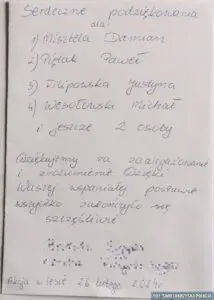 Serdeczne podziękowania
dla
1) Misztela Damian
2) Piętak Paweł
3) Filipowska Justyna
4) Wesołowski Michał
i jeszcze 2 osoby
Dziękujemy za zaangażowanie
i zrozumienie Dzięki
Waszej wspaniałej postawie
wszystko zakończyło się
szczęśliwie
Akcja w lesie 26 lutego 2024r